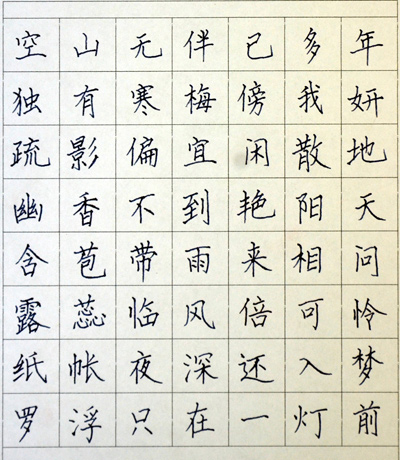 空山无伴已多年
独有寒梅傍我妍
疏影偏宜闲散地
幽香不到艳阳天
含苞带雨来相问
露蕊临风倍可怜
纸帐夜深还入梦
罗浮只在一灯前